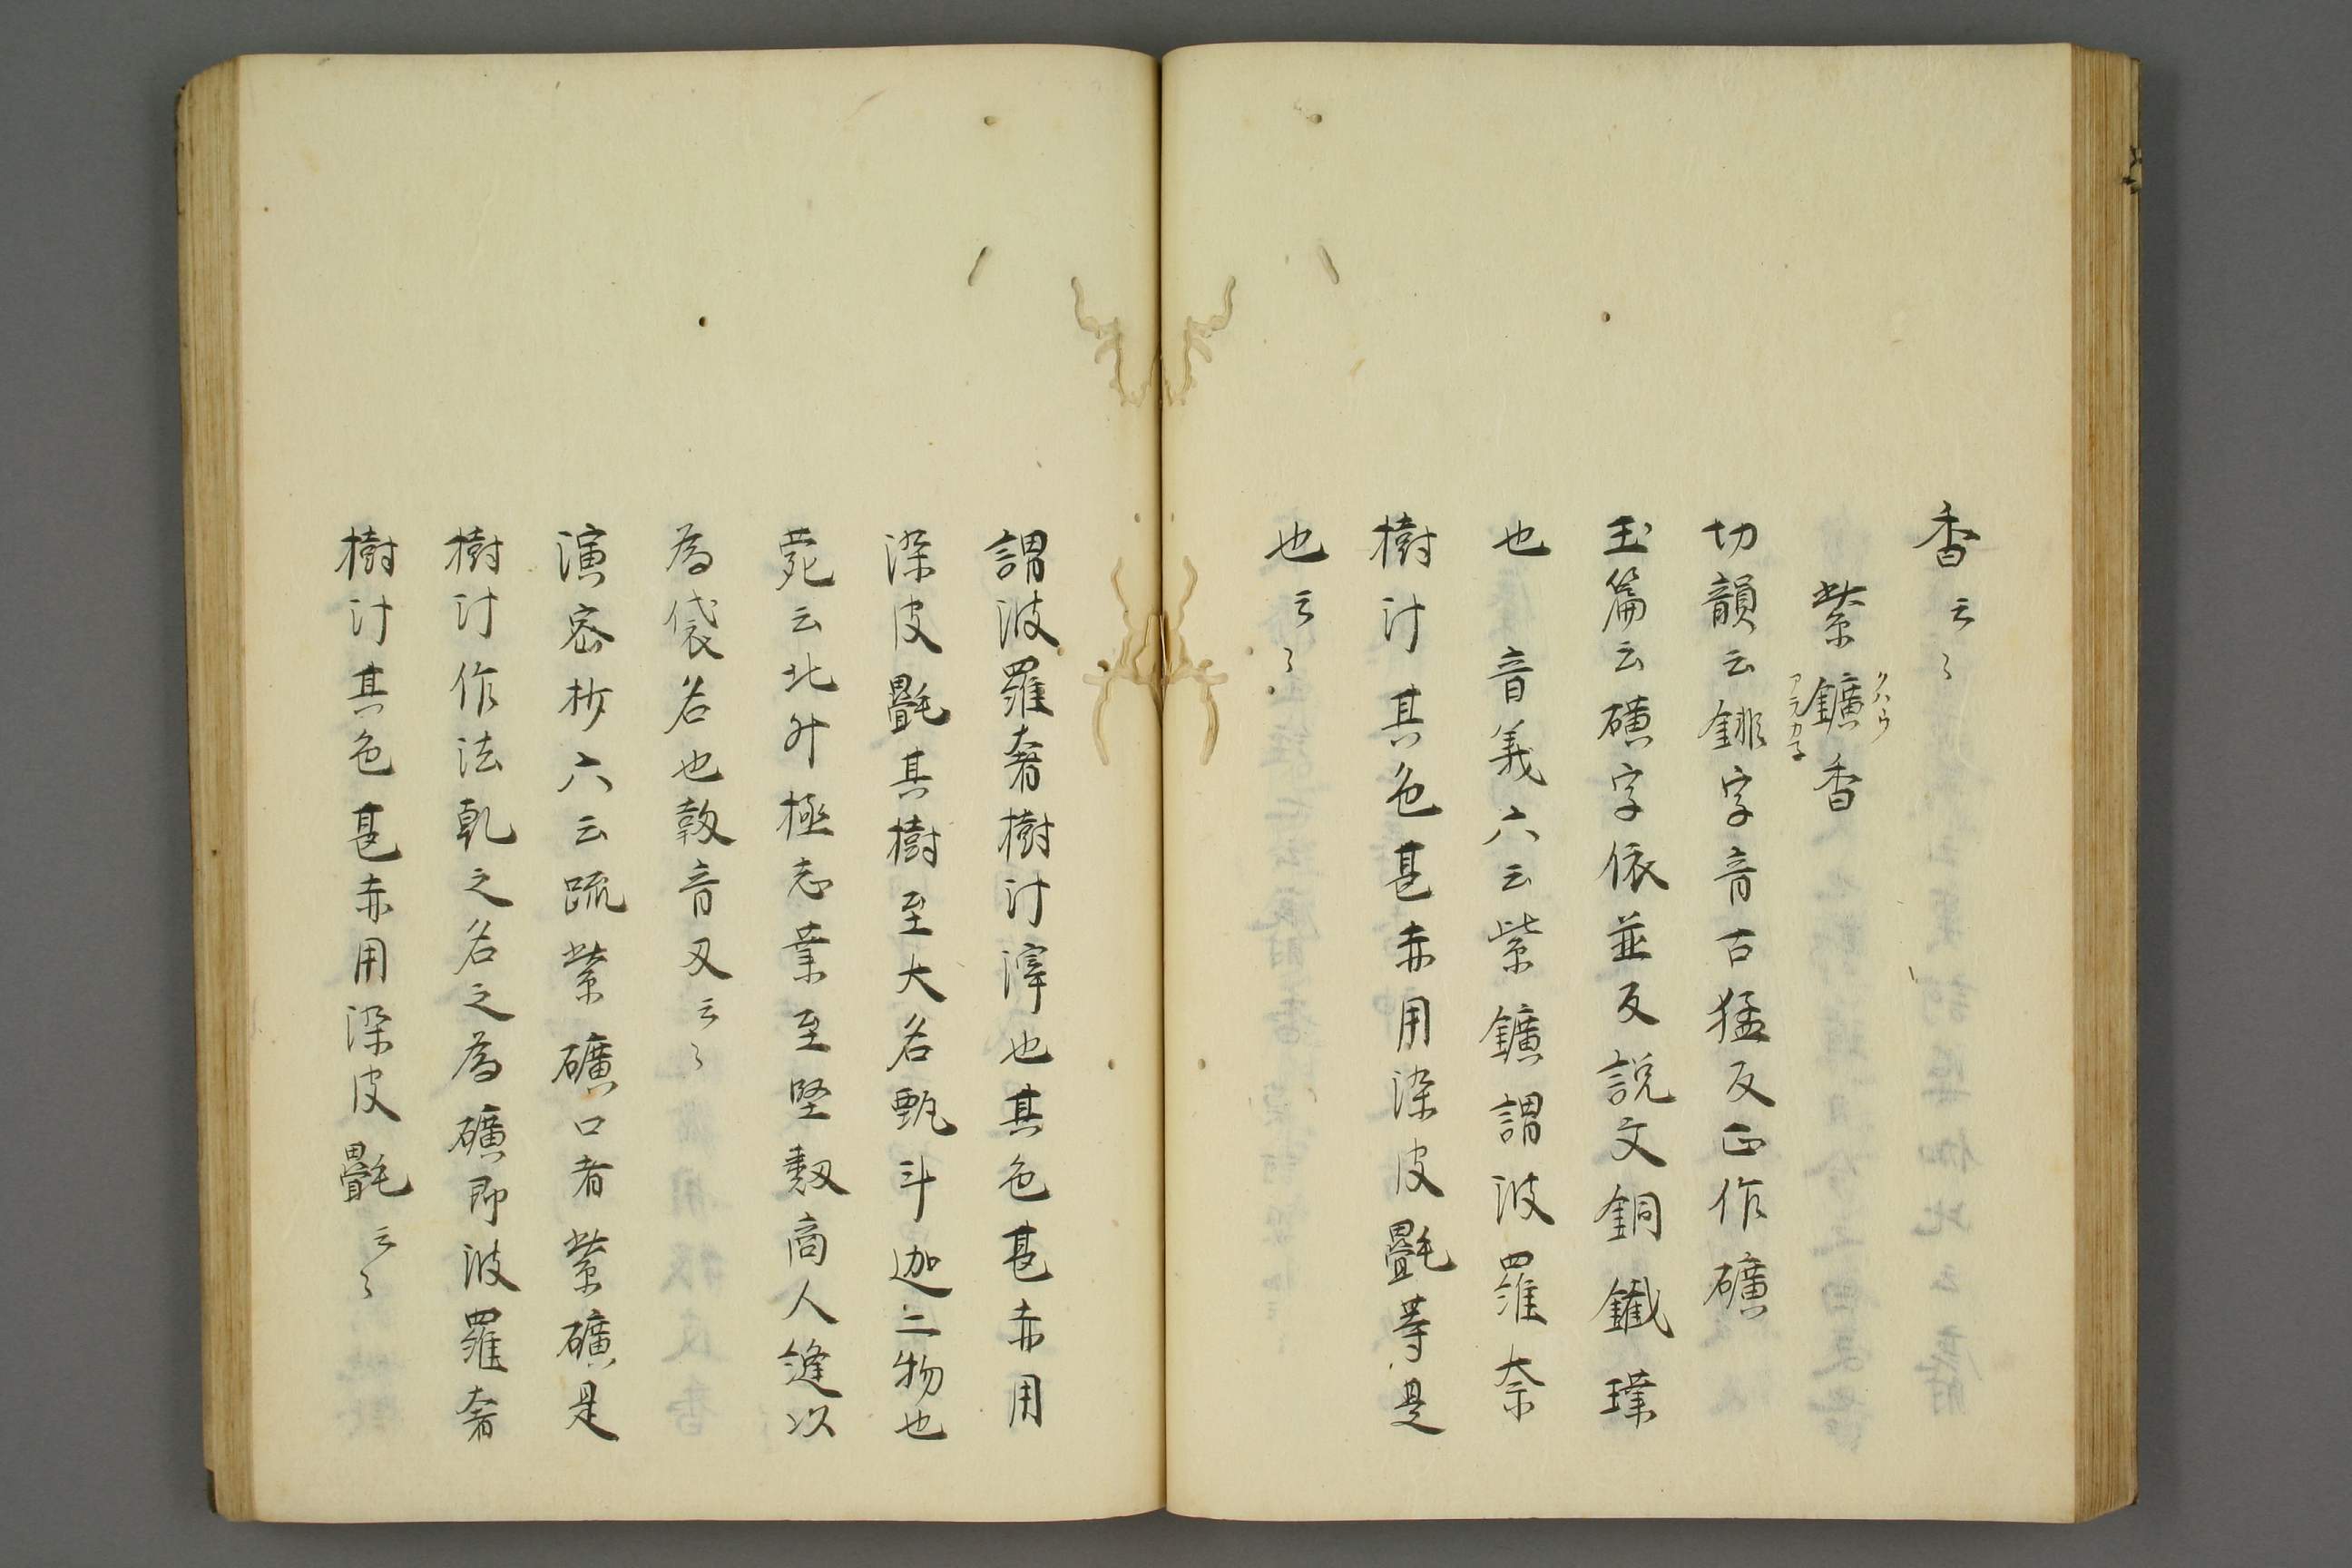 香云々
紫鑛香
クハウ
アラカネ
切韻云銾字音古猛反正作礦
玉篇云礦字依並反説文銅鐵璞
也　音義六云紫鑛謂波羅奈
樹汁其色甚赤用染皮氎等是
也云々
謂波羅奢樹汁滓也其色甚赤用
染皮氎其樹至大名甄斗迦二物也
菀云北外極志葉至堅㲉商人縫以
為袋名也敦音叉云々
演密抄六云疏紫礦口者紫礦是
樹汁作法乾之名之為礦即波羅奢
樹汁其色甚赤用染皮氎云々